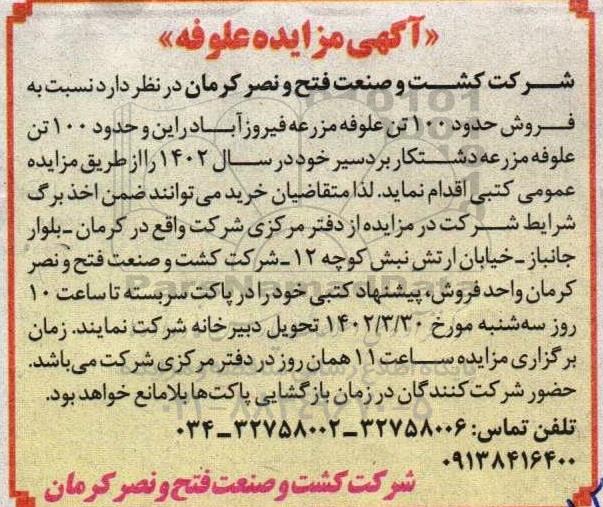 «آگهی مزایده علوفه»
شرکت کشت و صنعت فتح و نصر کرمان در نظر دارد نسبت به
فروش حدود ۱۰۰ تن علوفه مزرعه فیروزآباد راین و حدود ۱۰۰ تن
علوفه مزرعه دشتکار بردسیر خود در سال ۱۴۰۲ را از طریق مزایده
عمومی کتبی اقدام نماید. لذا متقاضیان خرید می‌توانند ضمن اخذ برگ
شرایط شرکت در مزایده از دفتر مرکزی شرکت واقع در کرمان ـ بلوار
جانباز ـ خیابان ارتش نبش کوچه ۱۲ ـ شرکت کشت و صنعت فتح و نصر
کرمان واحد فروش، پیشنهاد کتبی خود را در پاکت سربسته تا ساعت ۱۰
روز سه‌شنبه مورخ ۱۴۰۲/۳/۳۰ تحویل دبیرخانه شرکت نمایند. زمان
برگزاری مزایده ساعت ۱۱ همان روز در دفتر مرکزی شرکت می‌باشد.
حضور شرکت‌کنندگان در زمان بازگشایی پاکت‌ها بلامانع خواهد بود.
تلفن تماس: ۳۲۷۵۸۰۰۶ ـ ۳۲۷۵۸۰۰۲ ـ ۰۳۴
۰۹۱۳۸۴۱۶۴۰۰
شرکت کشت و صنعت فتح و نصر کرمان